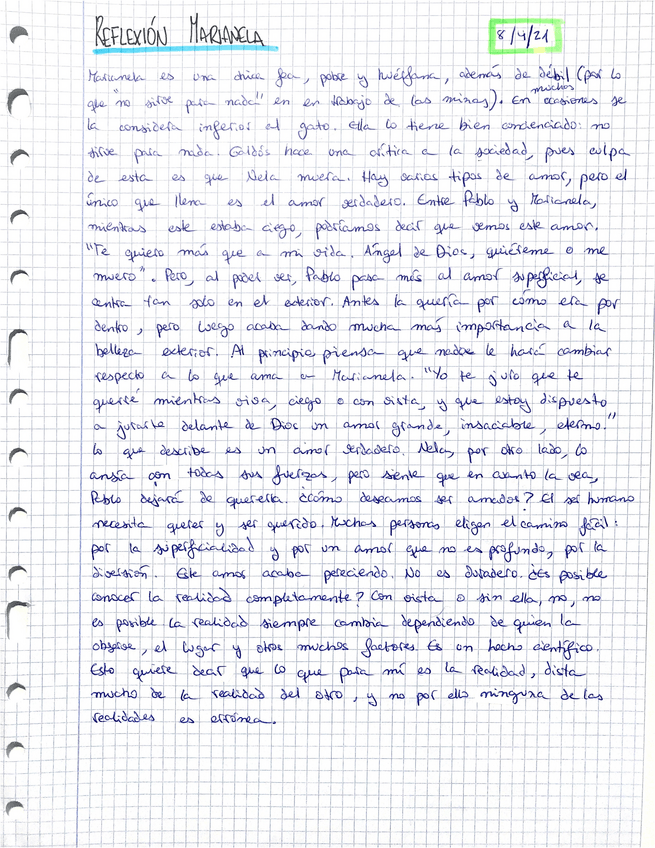 REFLEXIÓN MARIANELA
8/4/21
Marianela es una chica fea, pobre y huérfana, además de débil (por lo
que "no sirve para nada" en en trabajo de las minas). En muchas ocasiones se
la considera inferior al gato. Ella lo tiene bien concienciado: no
sirve para nada. Galdós hace una crítica a la sociedad, pues culpa
de esta es que Nela muera. Hay varios tipos de amor, pero el
único que llena es el amor verdadero. Entre Pablo y Marianela,
mientras este estaba ciego, podríamos decir que vemos este amor.
"Te quiero más que a mi vida. Ángel de Dios, quiéreme o me
muero". Pero, al poder ver, Pablo pasa más al amor superficial, se
centra tan solo en el exterior. Antes la quería por cómo era por
dentro, pero luego acaba dando mucha más importancia a la
belleza exterior. Al principio piensa que nadie le hará cambiar
respecto a lo que ama a Marianela. "Yo te juro que te
querré mientras viva, ciego o con vista, y que estoy dispuesto
a jurarte delante de Dios un amor grande, insaciable, eterno."
lo que describe es un amor verdadero. Nela, por otro lado, lo
ansía con todas sus fuerzas, pero siente que en cuanto la vea,
Pablo dejará de quererla. ¿Cómo deseamos ser amados? El ser humano
necesita querer y ser querido. Muchas personas eligen el camino fácil:
por la superficialidad y por un amor que no es profundo, por la
diversión. Este amor acaba pereciendo. No es duradero. ¿Es posible
conocer la realidad completamente? Con vista o sin ella, no, no
es posible la realidad siempre cambia dependiendo de quien la
observe, el lugar y otros muchos factores. Es un hecho científico.
Esto quiere decir que lo que para mí es la realidad, dista
mucho de la realidad del otro, y no por ello ninguna de las
realidades es errónea.